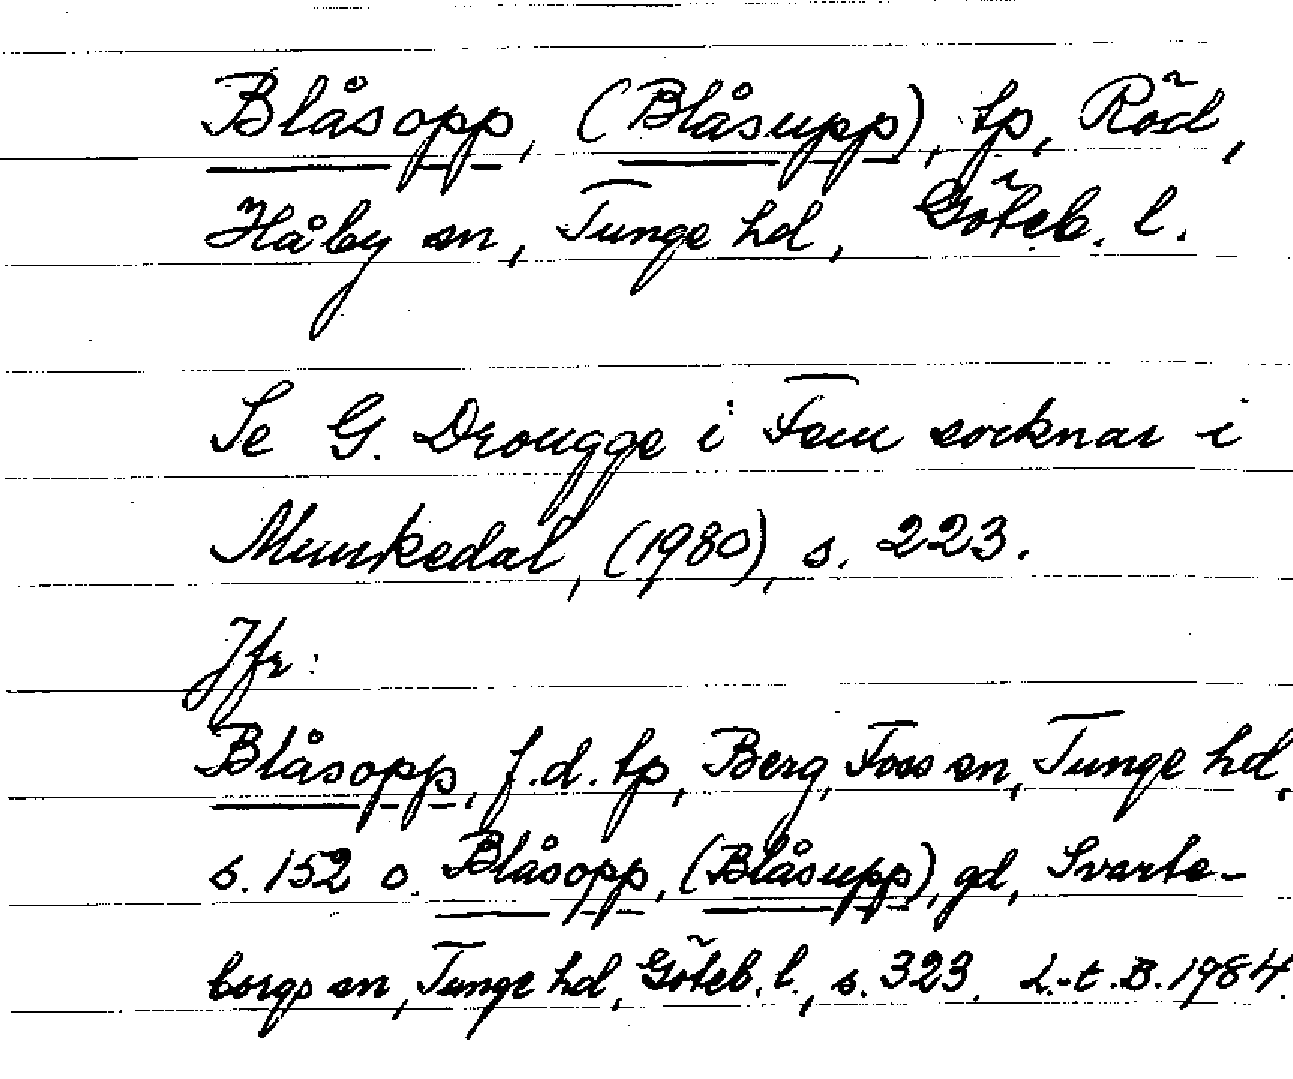 Blåsopp, (Blåsupp), tp, Röd,
Håby sn, Tunge hd, Göteb. l.
Se G. Drougge i Fem socknar i
Munkedal, (1980), s. 223.
Jfr:
Blåsopp, f.d. tp, Berg, Foss sn, Tunge hd,
s. 152 o. Blåsopp, (Blåsupp), gd, Svarte-
borgs sn, Tunge hd, Göteb. l., s. 323. L-t.B. 1984.